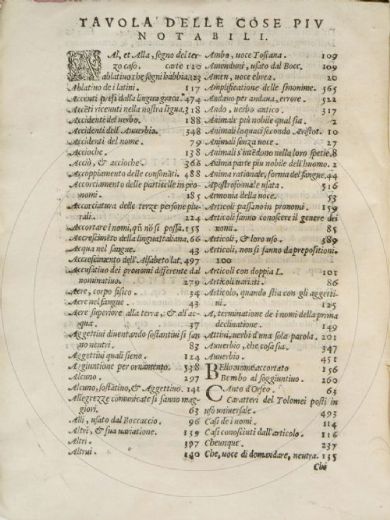 TAVOLA DELLE COSE PIV
NOTABILI.
Al, et Alla, segno del ter
zo caso. carte 120
Ablatiuo che segni habbia. 123
Ablatiuo de i latini. 117
Accenti presi dalla lingua greca. 474
Accenti riceuuti nella nostra lingua. 318
Accidenti del verbo. 188
Accidenti dell'Auuerbio. 348
Accidenti del nome. 79
Accioche. 138
Acciò, & accioche. 366
Accoppiamento delle consonãti. 488
Accorciamento delle particelle in pro
nomi. 185
Accorciatura delle terze persone plu
rali. 224
Accortare i nomi, quãdo si possa. 155
Accrescimẽto della lingua italiana. 66
Acqua nel sangue. 43
Accrescimento dell'Alfabeto lat. 497
Accusatiuo dei pronomi differente dal
nominatiuo. 279
Aere, corpo fisico. 34
Aere nel sangue. 43
Aere superiore alla terra, & all'ac
qua. 37
Aggettiui diuentando sostantiui si fan
no neutri. 83
Aggettiui quali sieno. 124
Aggiuntione per ornamento. 538
Alcuno. 297
Alcuno, sostãtiuo, & Aggettiuo. 141
Allegrezze communicate si fanno mag
giori. 63
Alli, vsato dal Boccaccio. 96
Altri, & sua variatione. 139
Altri. 140
Altrui. 140
Ambo, uoce Toscana. 109
Amendoni, usato dal Bocc. 109
Amen, uoce ebrea. 20
Amplificatione delle sinonime. 565
Andano per andana, errore. 522
Ando, uerbo antico. 317
Animale più nobile qual sia. 2
Animali loquaci secondo Aristot. 10
Animali senza uoce. 27
Animali s'intẽdono nella loro spetie. 8
Anima parte piu nobile dell'huomo. 2
Anima rationale, forma del sangue. 44
Apostrofo male usata. 516
Armonia della uoce. 53
Articoli passano in pronomi. 159
Articoli fanno conoscere il genere dei
nomi. 85
Articoli, & loro uso. 589
Articoli, non si fanno da prepositioni.
100
Articoli con doppia L. 101
Articoli uariati. 86
Articolo, quando stia con gli aggetti
ni. 125
A, terminatione de i nomi della prima
declinatione. 149
Attiui, uerbi d'una sola parola. 201
Auuerbio, che cosa sia. 347
Auuerbio. 451
Bellonome accortato 156
Bembo al soggiuntiuo 260
Canto d'Orfeo. 63
Caratteri del Tolomei posti in
uso uniuersale. 495
Casi de i nomi. 114
Casi conosciuti dall'articolo. 116
Cheunque. 237
Che, uoce di domandare, neutra. 135
Che